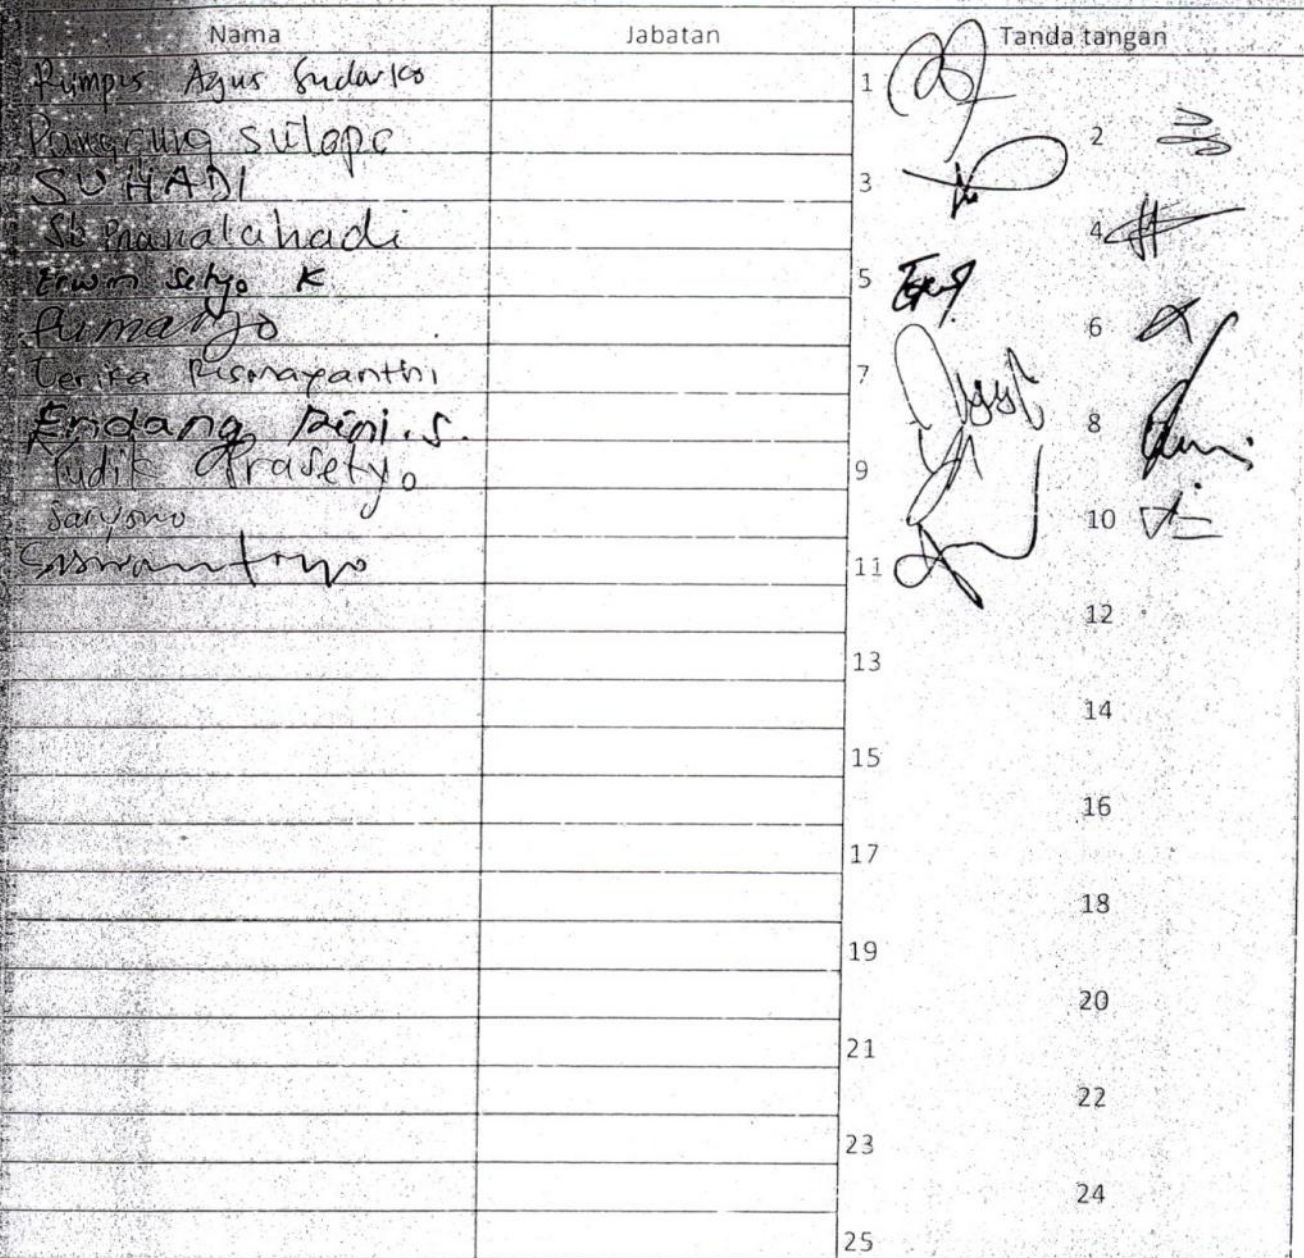 Nama Jabatan Tanda tangan
Rumpis Agus Sudarko 1
Panggung Sutapa 2
SUHADI 3
Sb Pranatahadi 4
Erwin Setyo K 5
Sumaryo 6
Cerika Rismayanthi 7
Endang Rini. S. 8
Yudik Prasetyo 9
Saryono 10
Siswantoyo 11
12
13
14
15
16
17
18
19
20
21
22
23
24
25